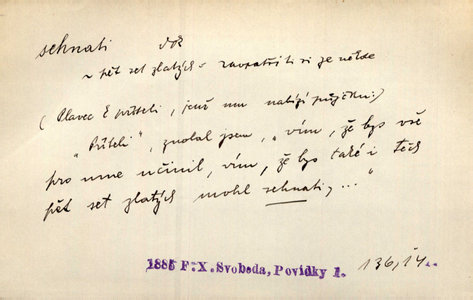 sehnati dok
~ pět set zlatých = zaopatřiti si je někde
(Hlavec k příteli, jenž mu nabízí půjčku:)
"Příteli", zvolal jsem, "vím, že bys vše
pro mne učinil, vím, že bys také i těch
pět set zlatých mohl sehnati, ..."
1885 F. X. Svoboda, Povídky 1. 136,14..